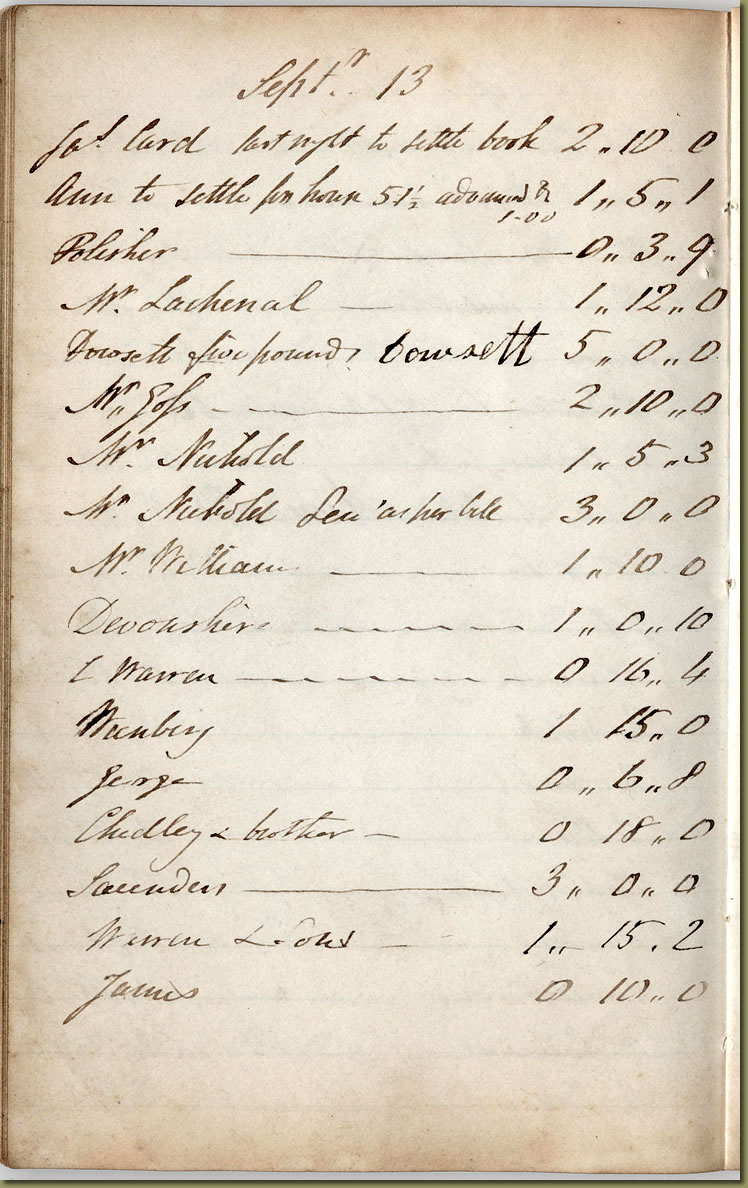 Septr. 13
Jas. Card last night to settle book 2 ,, 10 0
Ann to settle for house 51½ advanced 1 ,, 5 ,, 1
1-00
Polisher 0 ,, 3 ,, 9
Mr. Lachenal 1 ,, 12 ,, 0
Dowsett five pounds Dowsett 5 ,, 0 ,, 0
Mr. Goss 2 ,, 10 ,, 0
Mr. Nickold 1 ,, 5 ,, 3
Mr. Nickold Sen as per bill 3 ,, 0 ,, 0
Mr. William 1 ,, 10 0
Devonshire 1 ,, 0 ,, 10
Warren 0 16 ,, 4
1 15 ,, 0
George 0 ,, 6 ,, 8
Chidley & brother 0 18 ,, 0
Saunders 3 ,, 0 ,, 0
Warren & Sons 1 ,, 15 . 2
James 0 10 ,, 0